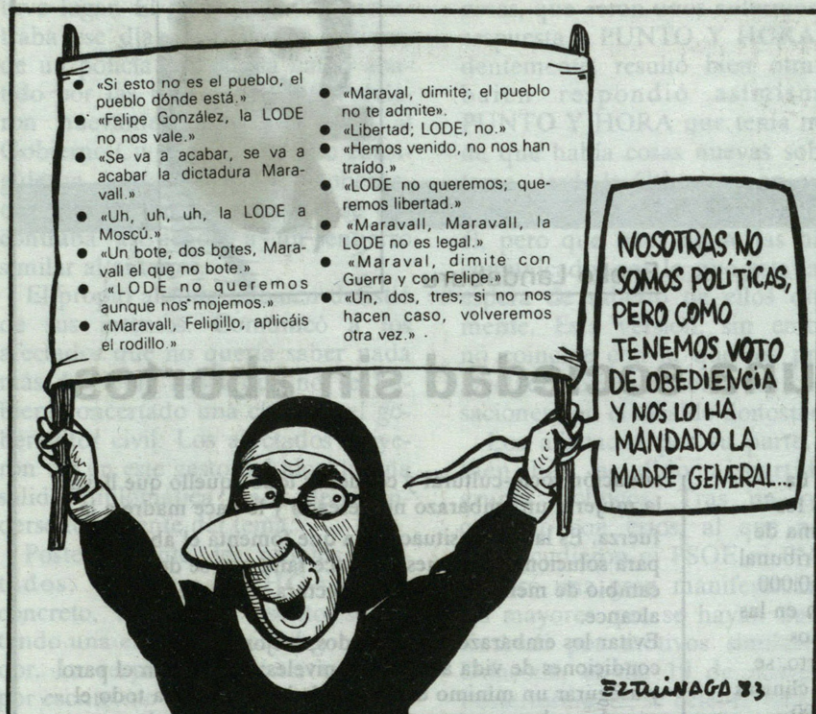 «Si esto no es el pueblo, el
pueblo dónde está.»
«Felipe González, la LODE
no nos vale.»
«Se va a acabar, se va a
acabar la dictadura Mara-
vall.»
«Uh, uh, uh, la LODE a
Moscú.»
«Un bote, dos botes, Mara-
vall el que no bote.»
«LODE no queremos
aunque nos mojemos.»
«Maravall, Felipillo, aplicáis
el rodillo.»
«Maraval, dimite; el pueblo
no te admite».
«Libertad; LODE, no.»
«Hemos venido, no nos han
traído.»
«LODE no queremos; que-
remos libertad.»
«Maravall, Maravall, la
LODE no es legal.»
«Maraval, dimite con
Guerra y con Felipe.»
«Un, dos, tres; si no nos
hacen caso, volveremos
otra vez.»
NOSOTRAS NO
SOMOS POLÍTICAS,
PERO COMO
TENEMOS VOTO
DE OBEDIENCIA
Y NOS LO HA
MANDADO LA
MADRE GENERAL...
EZTUINAGA '83